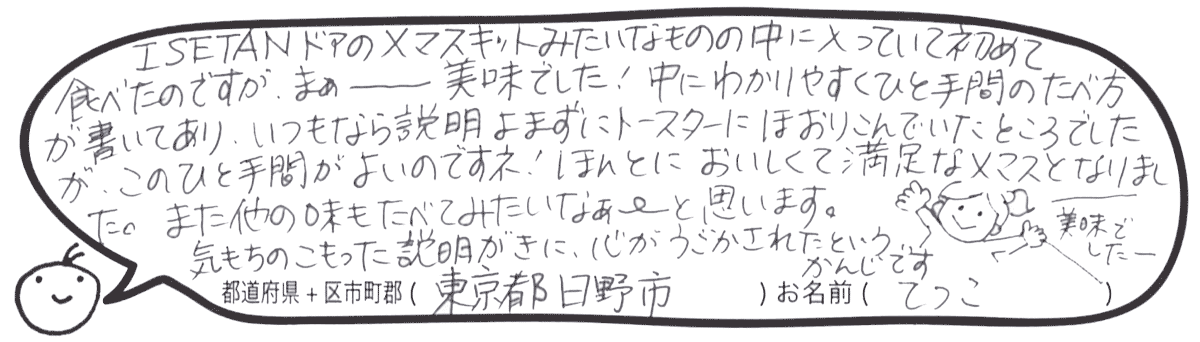 ISETANドアのXマスキットみたいなものの中に入っていて初めて
食べたのですが、まぁ――美味でした!中にわかりやすくひと手間のたべ方
が書いてあり、いつもなら説明よまずにトースターにほおりこんでいたところでした
が、このひと手間がよいのですネ!ほんとにおいしくて満足なXマスとなりまし
た。また他の味もたべてみたいなぁ〜と思います。
美味で
したー
気もちのこもった説明がきに、心がうごかされたという
かんじです
都道府県+区市町郡(東京都日野市)お名前(てつこ)